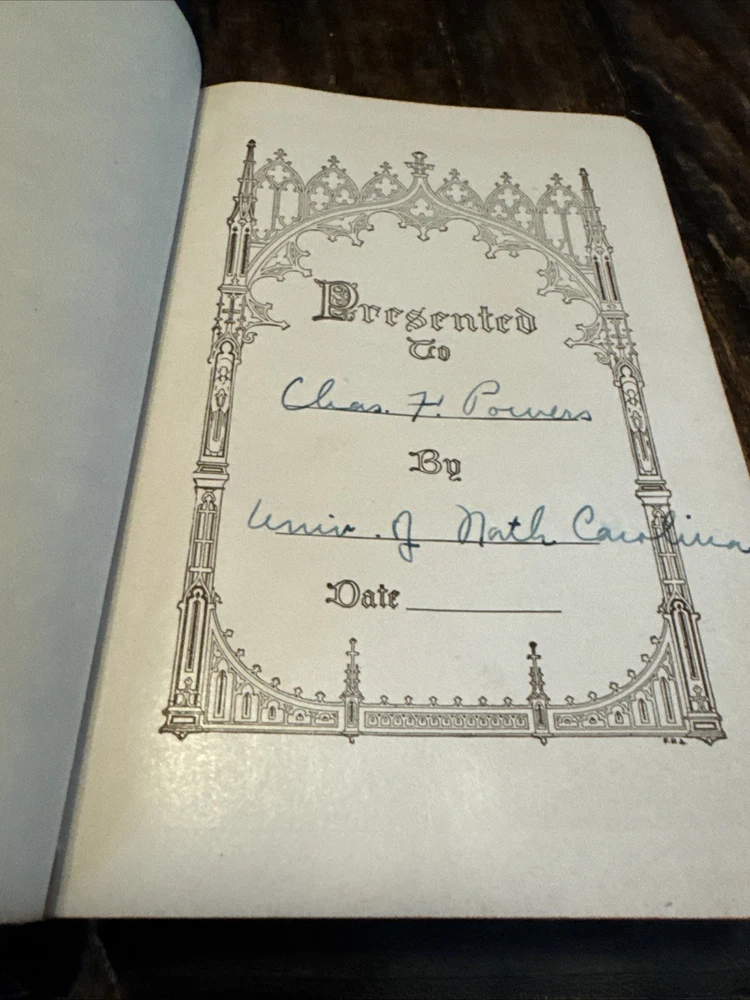 Presented
To
Chas. F. Powers
By
Univ. of North Carolina
Date